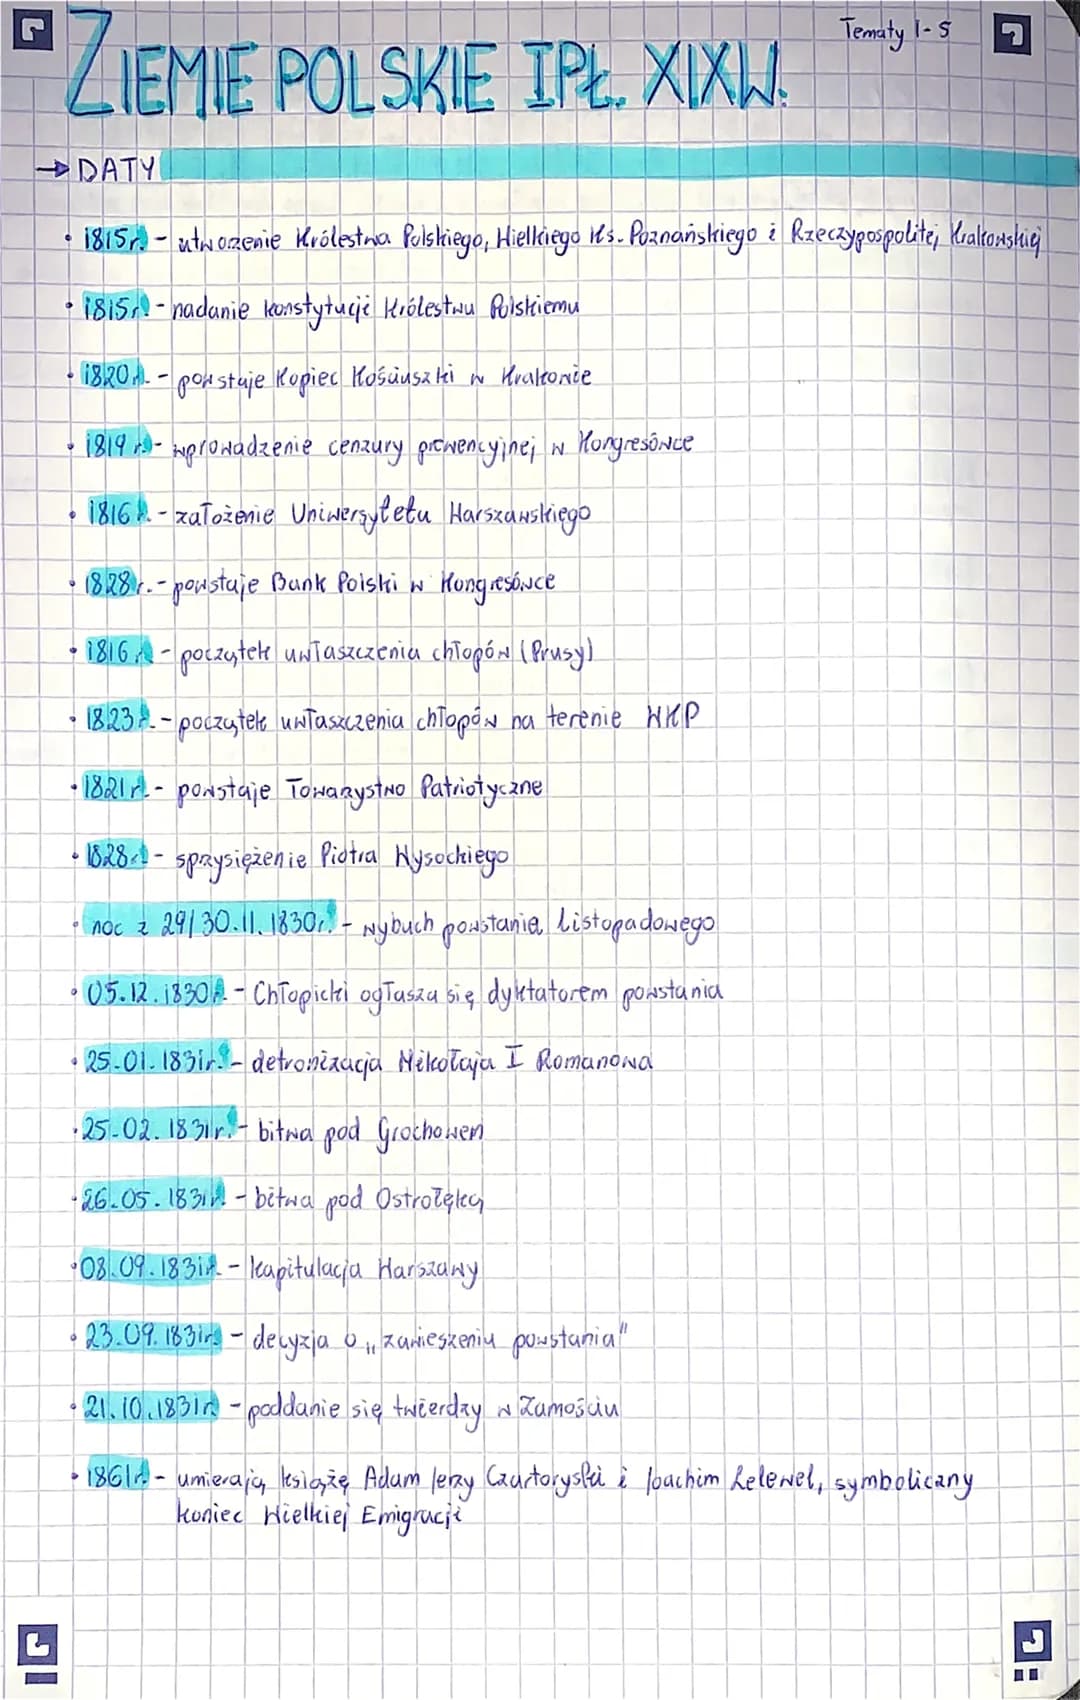 Tematy 1-5
ZIEMIE POLSKIE I PŁ. XIX W.
→ DATY
• 1815r. - utworzenie Królestwa Polskiego, Wielkiego Ks. Poznańskiego i Rzeczypospolitej Krakowskiej
• 1815r. - nadanie konstytucji Królestwu Polskiemu
• 1820r. - powstaje Kopiec Kościuszki w Krakowie
• 1819 r. - wprowadzenie cenzury prewencyjnej w Kongresówce
• 1816r. - założenie Uniwersytetu Warszawskiego
• 1828r. - powstaje Bank Polski w Kongresówce
• 1816r. - początek uwłaszczenia chłopów (Prusy)
• 1823r. - początek uwłaszczenia chłopów na terenie WKP
• 1821r. - powstaje Towarzystwo Patriotyczne
• 1828r. - sprzysiężenie Piotra Wysockiego
• noc z 29/30.11.1830r. - wybuch powstania listopadowego
• 05.12.1830r. - Chłopicki ogłasza się dyktatorem powstania
• 25.01.1831r. - detronizacja Mikołaja I Romanowa
• 25.02.1831r. - bitwa pod Grochowem
• 26.05.1831r. - bitwa pod Ostrołęką
• 08.09.1831r. - kapitulacja Warszawy
• 23.09.1831r. - decyzja o „zawieszeniu powstania"
• 21.10.1831r. - poddanie się twierdzy w Zamościu
• 1861r. - umierają książę Adam Jerzy Czartoryski i Joachim Lelewel, symboliczny
koniec Wielkiej Emigracji